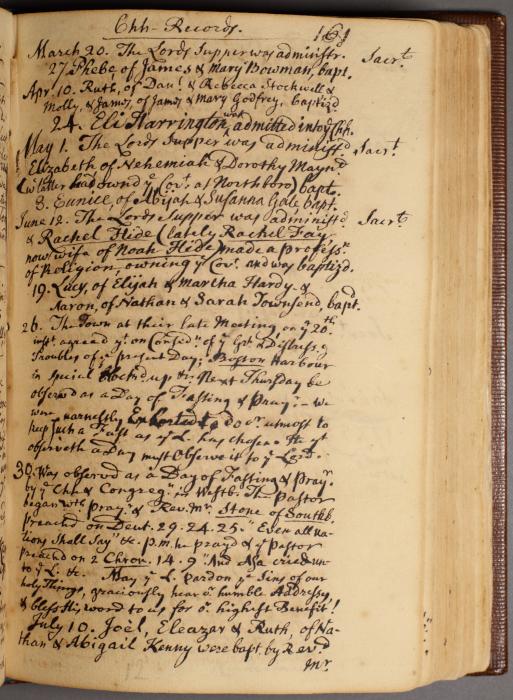 Chh- Records. 161
March 20. The Lords Supper was administr. Sacrt.
27 Phebe, of James & Mary Bowman, bapt.
Apr. 10. Ruth, of Danl. & Rebecca Stockwell &
Molly, & James, of James & Mary Godfrey, baptiz'd
24. Eli Harrington, was admitted into ye Chh.
May 1. The Lords Supper was administ'd Sacrt.
Elizabeth of Nehemiah & Dorothy Maynd
(ye latter had own'd ye Covt. at Northboro) bapt.
8. Eunice, of Abijah & Susanna Gale bapt.
June 12. The Lords Supper was administ'd Sacrt.
& Rachel Hide (lately Rachel Fay
now wife of Noah Hide) made a professn
of Religion, owning ye Covt. and was baptiz'd.
19. Lucy, of Elijah & Martha Hardy &
Aaron, of Nathan & Sarah Townsend, bapt.
26. The Town at their late Meeting, on ye 20th
inst. agreed yt on Consedn. of ye Grt & Distress, g
Troubles of ye present Day; Boston Harbour
in special block'd up &c. Next Thursday be
observ'd as a Day of Fasting & Prayr. - We
were earnestly Exhorted to do or utmost to
keep such a Fast as ye L. has chosen. He yt
observeth a Day must Observe it to ye Lord.
30. Was observ'd as a Day of Fasting & Prayr.
by ye Chh & Congregn. in Westb. The Pastor
began wth prayr. & Revd. Mr. Stone of Southb.
preached on Deut. 29. 24. 25. "Even all na-
tions shall Say" &c. p.m. he pray'd & ye Pastor
preached on 2 Chron. 14. 9 "And Asa cried un-
to ye L. &c. May ye L. pardon ye Sins of our
holy Things, graciously hear or humble Addresses,
& bless His word to us for or highest Benefit!
July 10. Joel, Eleazar & Ruth, of Na-
than & Abigail Kenny were bapt. by Revd
Mr.